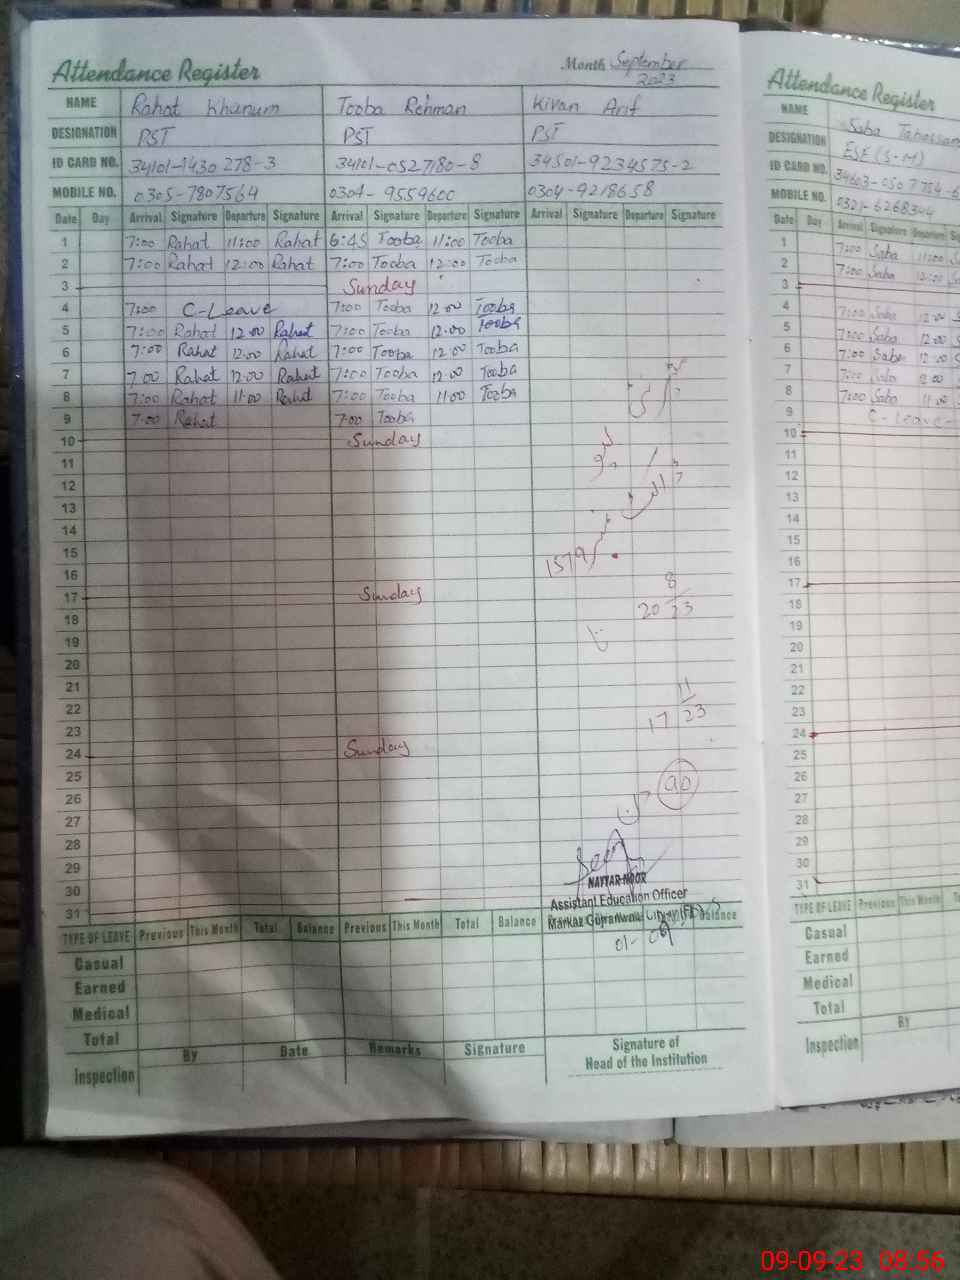 Attendance Register
Month September
2023
NAME Rahat Khanum Tooba Rehman Kiran Arif
DESIGNATION PST PST PST
ID CARD NO. 34101-1430278-3 34101-0527180-8 34501-9234575-2
MOBILE NO. 0305-7807564 0304-9559600 0304-9218658
Date Day Arrival Signature Departure Signature Arrival Signature Departure Signature Arrival Signature Departure Signature
1 7:00 Rahat 11:00 Rahat 6:45 Tooba 11:00 Tooba
2 7:00 Rahat 12:00 Rahat 7:00 Tooba 12:00 Tooba
3 Sunday
4 7:00 C-Leave 7:00 Tooba 12:00 Tooba
5 7:00 Rahat 12:00 Rahat 7:00 Tooba 12:00 Tooba
6 7:00 Rahat 12:00 Rahat 7:00 Tooba 12:00 Tooba
7 7:00 Rahat 12:00 Rahat 7:00 Tooba 12:00 Tooba
8 7:00 Rahat 11:00 Rahat 7:00 Tooba 11:00 Tooba
9 7:00 Rahat 7:00 Tooba
10 Sunday
11
12
13
14
15
1579
16
17 Sunday
8
20 23
18
19
20
21
22
11
17 23
23
24 Sunday
25
26
90
27
28
29
30
31
NAYYAR NOOR
Assistant Education Officer
Markaz Gujranwala City
TYPE OF LEAVE Previous This Month Total Balance Previous This Month Total Balance Balance
Casual
Earned
Medical
Total
Inspection By Date Remarks Signature
Signature of
Head of the Institution
Attendance Register
NAME Saba
DESIGNATION ESE (S-M)
ID CARD NO. 34603-0507754-6
MOBILE NO. 0321-6268344
Date Day Arrival Signature Departure
1 7:00 Saba 11:00 S
2 7:00 Saba 12:00 S
3
4 7:00 Saba 12:00 S
5 7:00 Saba 12:00
6 7:00 Saba 12:00 S
7 7:00 Saba 12:00
8 7:00 Saba 11:00
9 C-Leave-
10
11
12
13
14
15
16
17
18
19
20
21
22
23
24
25
26
27
28
29
30
31
TYPE OF LEAVE Previous This Month Total
Casual
Earned
Medical
Total
Inspection By
09-09-23 08:56